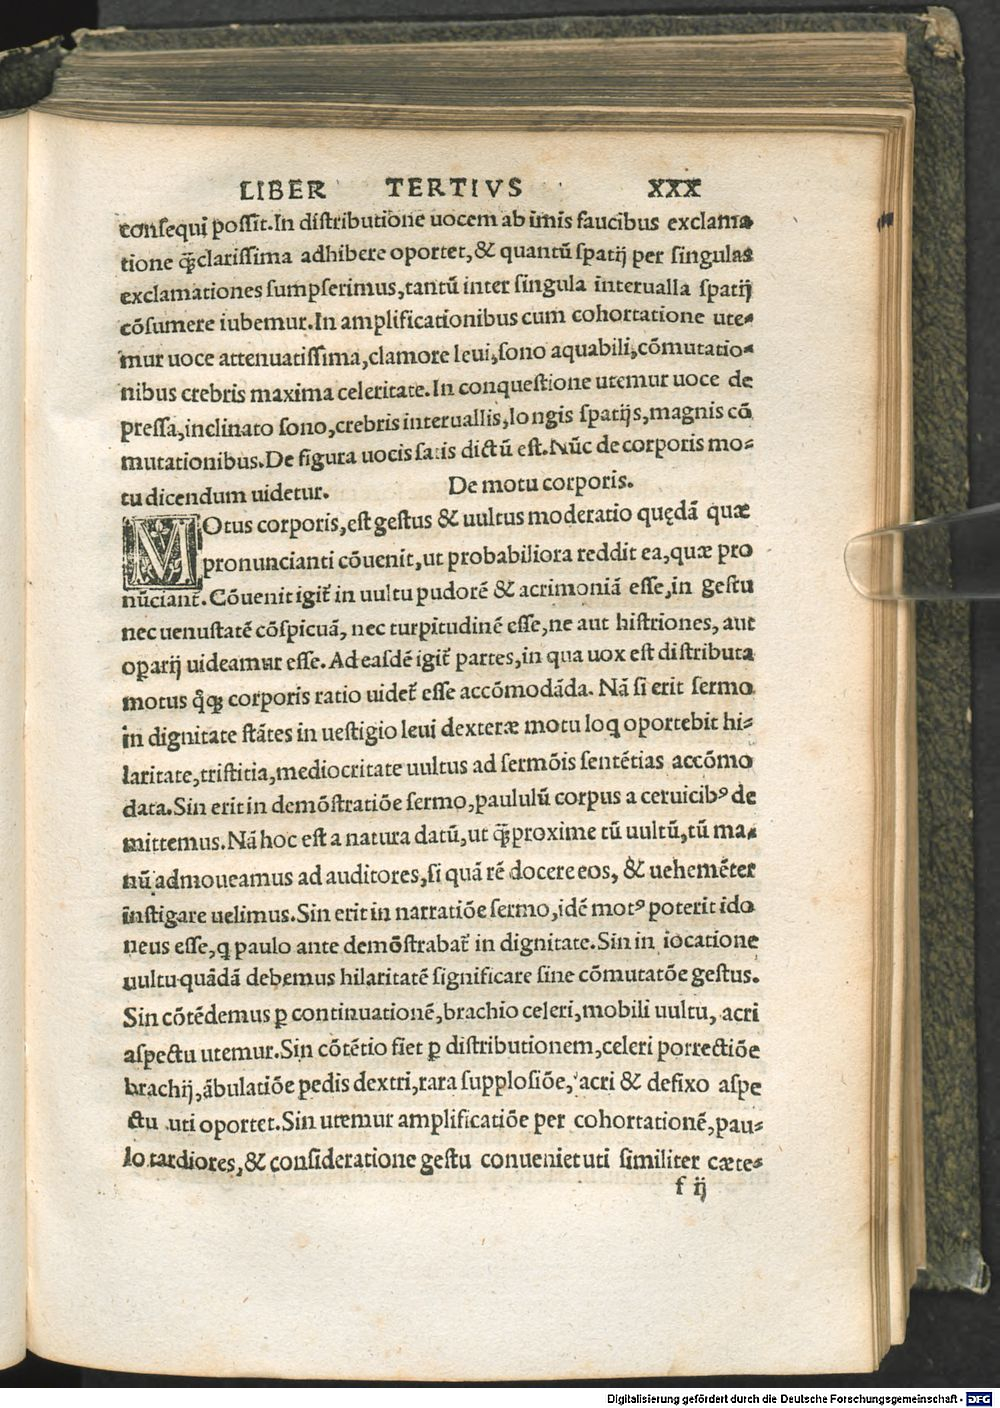 LIBER TERTIVS XXX
consequi possit. In distributione uocem ab imis faucibus exclama
tione q̃clarissima adhibere oportet, & quantũ spatij per singulas
exclamationes sumpserimus, tantũ inter singula interualla spatij
cõsumere iubemur. In amplificationibus cum cohortatione ute-
mur uoce attenuatissima, clamore leui, sono aquabili, cõmutatio-
nibus crebris maxima celeritate. In conquestione utemur uoce de
pressa, inclinato sono, crebris interuallis, longis spatijs, magnis cõ
mutationibus. De figura uocis satis dictũ est. Nũc de corporis mo-
tu dicendum uidetur. De motu corporis.
MOtus corporis, est gestus & uultus moderatio quędã quæ
pronuncianti cõuenit, ut probabiliora reddit ea, quæ pro
nũciant̃. Cõuenit igit̃ in uultu pudorẽ & acrimoniã esse, in gestu
nec uenustatẽ cõspicuã, nec turpitudinẽ esse, ne aut histriones, aut
oꝑarij uideamur esse. Ad easdẽ igit̃ partes, in qua uox est distributa
motus q̊ꝗ corporis ratio uidet̃ esse accõmodãda. Nã si erit sermo
in dignitate stãtes in uestigio leui dexteræ motu loꝗ oportebit hi-
laritate, tristitia, mediocritate uultus ad sermõis sentẽtias accõmo
data. Sin erit in demõstratiõe sermo, paululũ corpus a ceruicibꝰ de
mittemus. Nã hoc est a natura datũ, ut q̃proxime tũ uultũ, tũ ma-
nũ admoueamus ad auditores, si quã rẽ docere eos, & uehemẽter
instigare uelimus. Sin erit in narratiõe sermo, idẽ motꝰ poterit ido
neus esse, ꝗ paulo ante demõstrabat̃ in dignitate. Sin in iocatione
uultu quãdã debemus hilaritatẽ significare sine cõmutatõe gestus.
Sin cõtẽdemus ꝑ continuationẽ, brachio celeri, mobili uultu, acri
aspectu utemur. Sin cõtẽtio fiet ꝑ distributionem, celeri porrectiõe
brachij, ãbulatiõe pedis dextri, rara supplosiõe, acri & defixo aspe
ctu uti oportet. Sin utemur amplificatiõe per cohortationẽ, pau-
lo tardiores, & consideratione gestu conueniet uti similiter cæte-
f ij
Digitalisierung gefördert durch die Deutsche Forschungsgemeinschaft - DFG